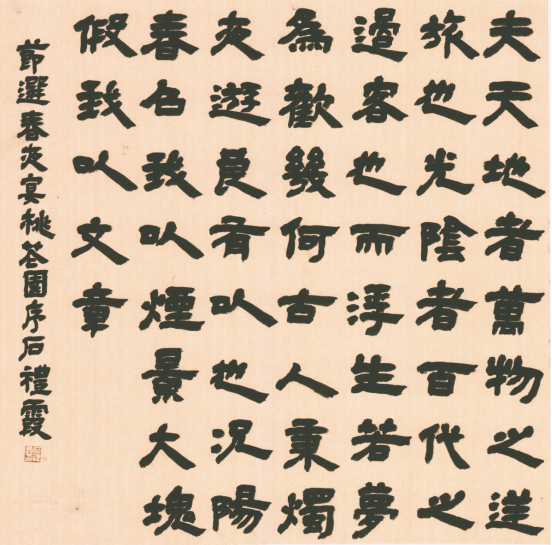 夫天地者萬物之逆
旅也光陰者百代之
過客也而浮生若夢
為歡幾何古人秉燭
夜遊良有以也況陽
春召我以煙景大塊
假我以文章
節選春夜宴桃花園序石禮霞